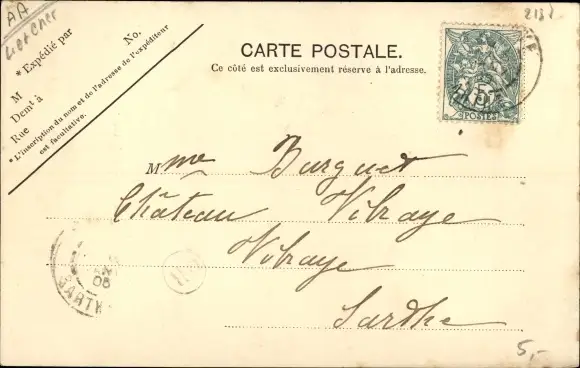 AA
Loir et Cher
* Expédié par
No.
M
Demt à
Rue
* L'inscription du nom et de l'adresse de l'expéditeur
est facultative.
CARTE POSTALE.
Ce côté est exclusivement réservé à l'adresse.
5
POSTES
Mme Burguet
Château Vibraye
Vibraye
Sarthe
SARTH
5,-